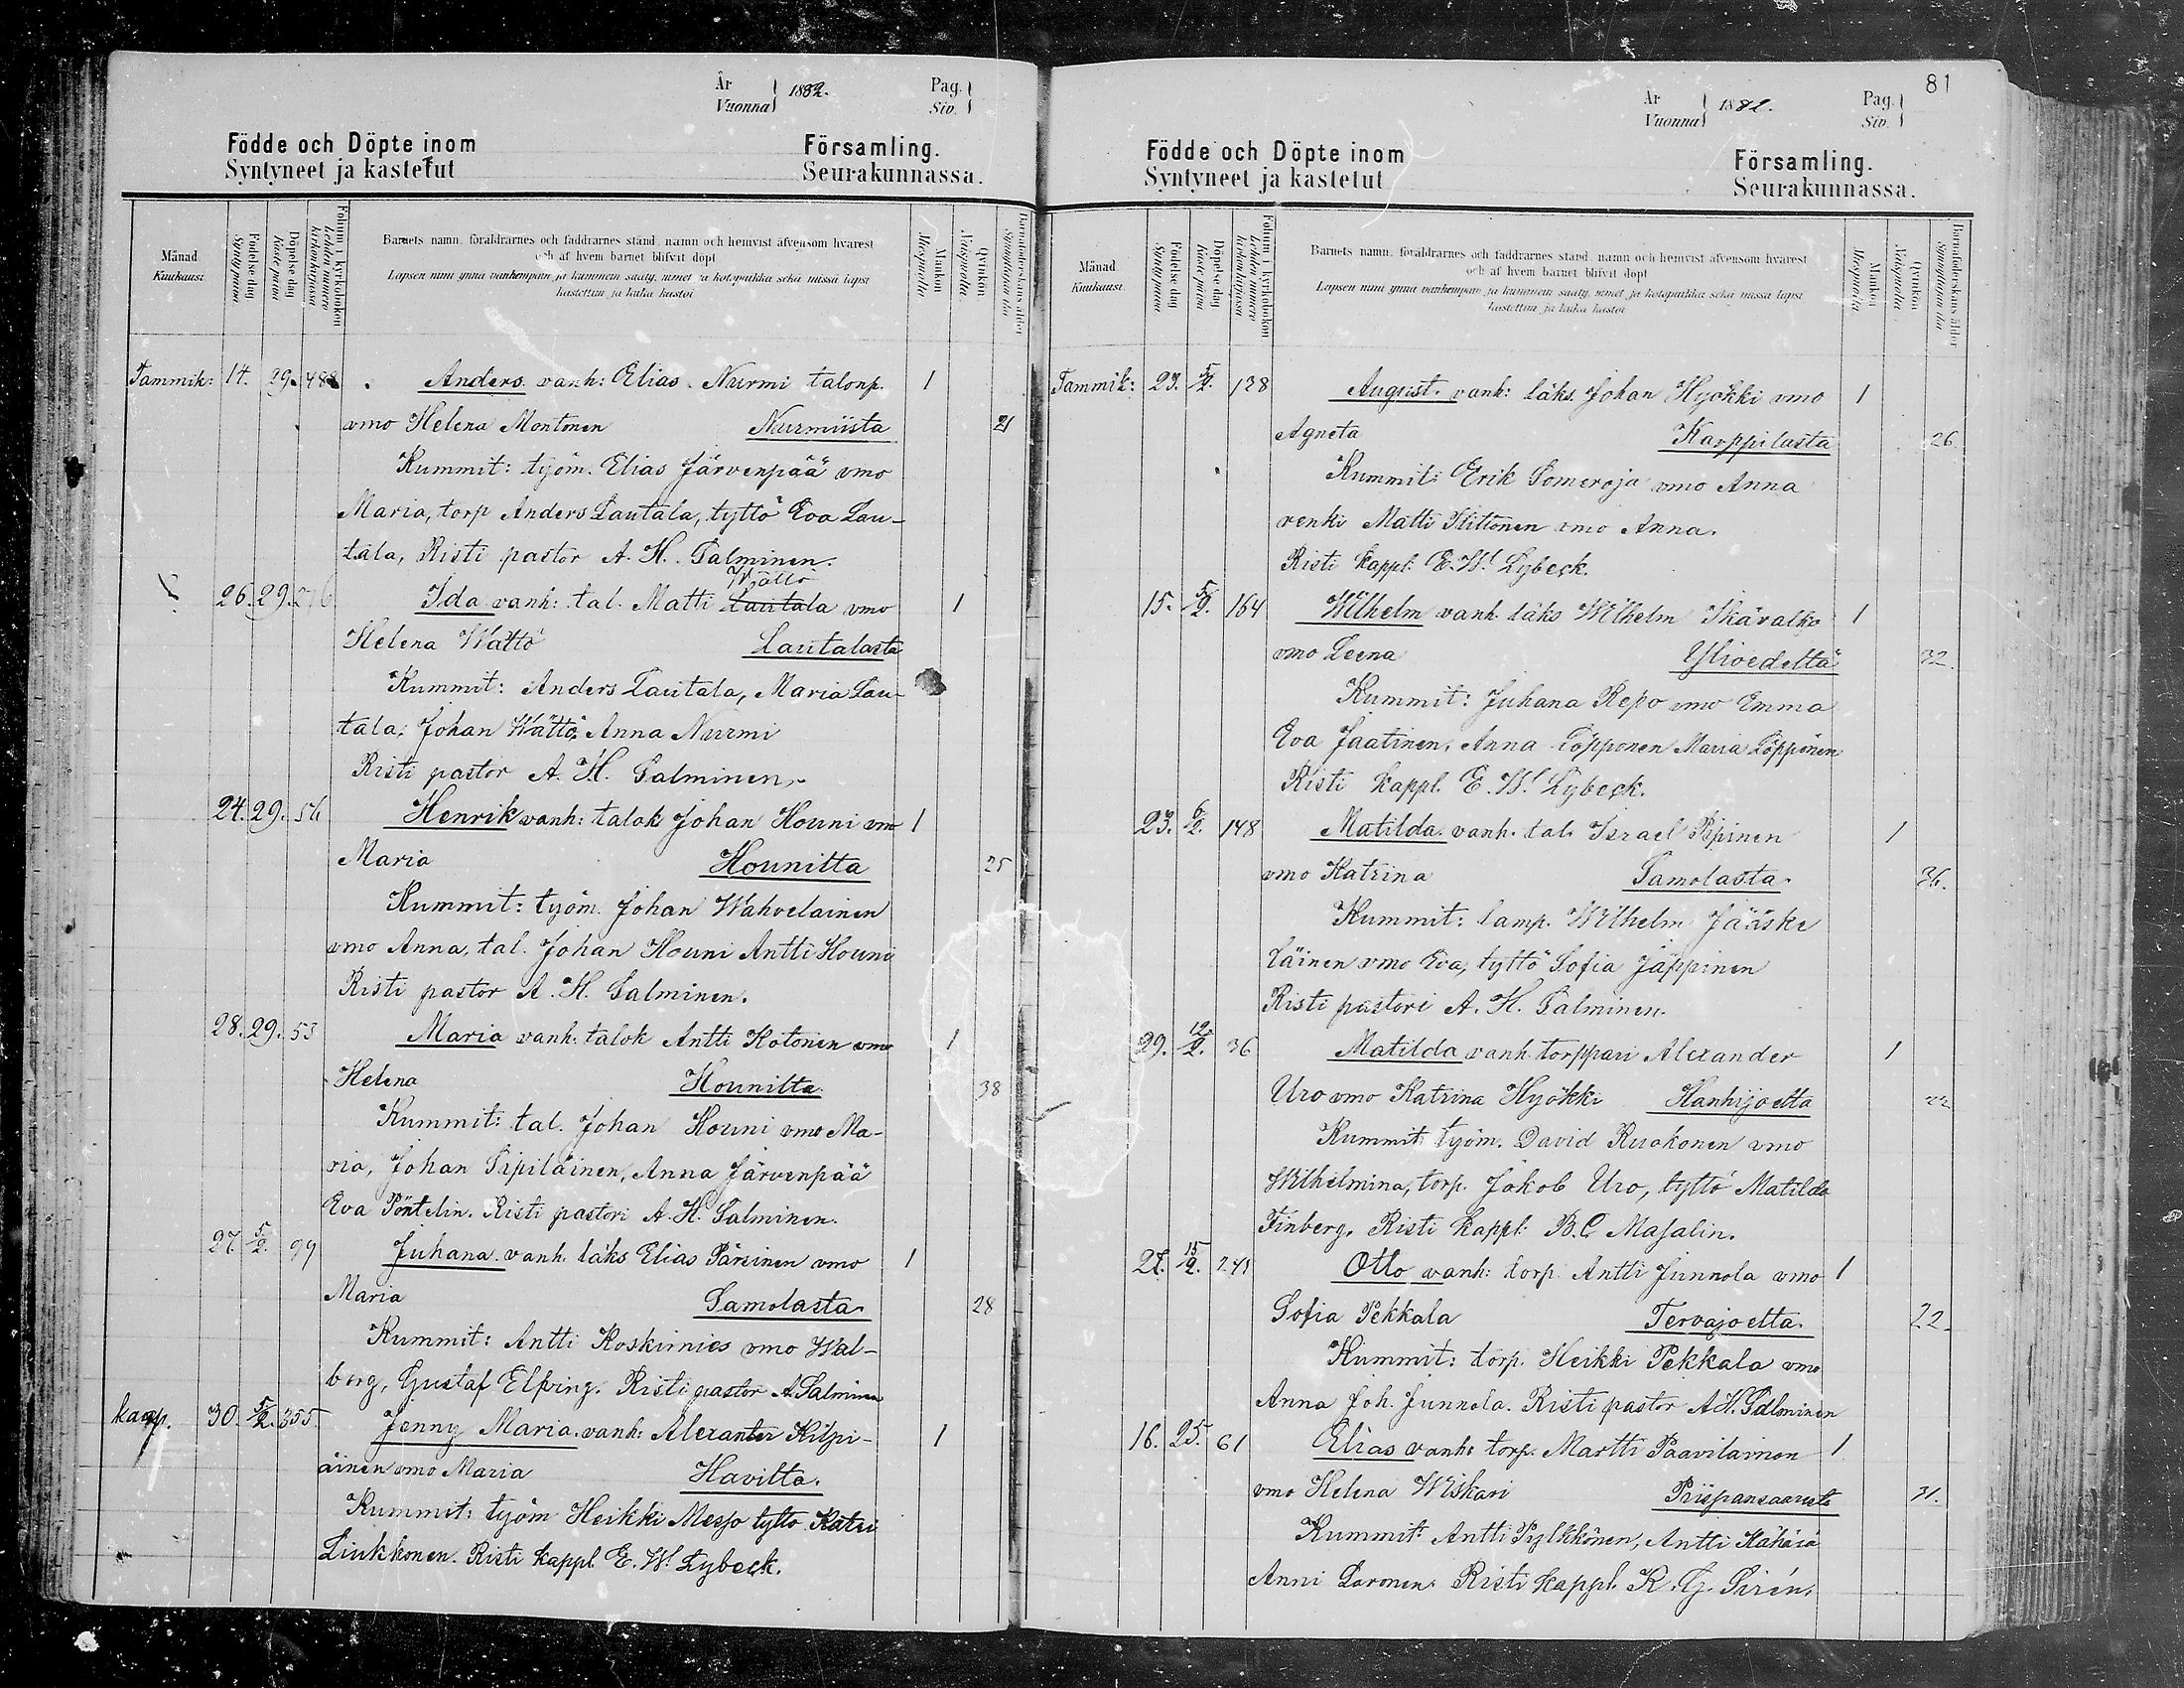 År
Vuonna
1882.
Pag.
Siv.
Födde och Döpte inom
Församling.
Syntyneet ja kastetut
Seurakunnassa.
Månad
Kuukausi
Födelse dag
Syntypäivä
Döpelse dag
Kastepäivä
Folium i kyrkoboken
Lehden numero kirkonkirjassa
Barnets namn, föräldrarnes och faddrarnes stånd, namn och hemvist äfvensom hvarest
och af hvem barnet blifvit döpt
Lapsen nimi ynnä vanhempain ja kummein sääty, nimet ja kotopaikka sekä missä lapsi
kastettiin ja kuka kastoi
Mankön
Miespuolia
Qvinkön
Naispuolia
Barnaföderskans ålder
Synnyttäjän ikä
Tammik: 14. 29. 488 Anders vanh: Elias Nurmi talonp. 1
vmo Helena Montonen Nurmiista 21
Kummit: työm. Elias Järvenpää vmo
Maria, torp Anders Lautala, tyttö Eva Lau-
tala, Risti pastor A. H. Salminen.
Wättö
26. 29. 276 Ida vanh: tal. Matti Lautala vmo 1
Helena Wättö Lautalasta
Kummit: Anders Lautala, Maria Lau-
tala, Johan Wättö, Anna Nurmi
Risti pastor A. H. Salminen.
24. 29. 56 Henrik vanh: talok Johan Houni vmo 1
Maria Hounilta 25
Kummit: työm. Johan Wahvelainen
vmo Anna, tal. Johan Houni Antti Houni
Risti pastor A. H. Salminen.
28. 29. 53 Maria vanh: talok Antti Kotonen vmo 1
Helena Hounilta 38
Kummit: tal. Johan Houni vmo Ma-
ria, Johan Sipiläinen, Anna Järvenpää
Eva Pöntelin. Risti pastori A. H. Salminen.
27. 5/2. 99 Juhana vanh. läks Elias Pärsinen vmo 1
Maria Samolasta 28
Kummit: Antti Koskimies vmo Wal-
borg, Gustaf Elfving. Risti pastor A Salminen
kaup. 30. 5/2. 355 Jenny Maria vanh: Alexanter Kilpi- 1
äinen vmo Maria Havilta.
Kummit: työm Heikki Mesjo tyttö Katri
Liukkonen. Risti kappl E. W. Lybeck.
81
År
Vuonna
1882.
Pag.
Siv.
Födde och Döpte inom
Församling.
Syntyneet ja kastetut
Seurakunnassa.
Månad
Kuukausi
Födelse dag
Syntypäivä
Döpelse dag
Kastepäivä
Folium i kyrkoboken
Lehden numero kirkonkirjassa
Barnets namn, föräldrarnes och faddrarnes stånd, namn och hemvist äfvensom hvarest
och af hvem barnet blifvit döpt
Lapsen nimi ynnä vanhempain ja kummein sääty, nimet ja kotopaikka sekä missä lapsi
kastettiin ja kuka kastoi
Mankön
Miespuolia
Qvinkön
Naispuolia
Barnaföderskans ålder
Synnyttäjän ikä
Tammik: 23. 5/2. 138 August. vanh: läks. Johan Hyökki vmo 1
Agneta Karppilasta 26.
Kummit: Erik Someroja vmo Anna
renki Matti Ilittonen vmo Anna.
Risti kappl. E. W. Lybeck.
15. 5/2. 164 Wilhelm vanh. läks Wilhelm Ikävalko 1
vmo Leena Ylivedeltä 32.
Kummit: Juhana Repo vmo Emma
Eva Jaatinen, Anna Töpponen Maria Töppönen
Risti kappl. E. W. Lybeck.
23. 6/2. 148 Matilda vanh. tal. Israel Pipinen 1
vmo Katrina Samolasta. 36.
Kummit: lamp. Wilhelm Jääske
läinen vmo Eva, tyttö Sofia Jäppinen
Risti pastori A. H. Salminen.
29. 12/2. 36 Matilda vanh torppari Alexander 1
Uro vmo Katrina Hyökki Hanhijoetta 22
Kummit työm. David Ruokonen vmo
Wilhelmina, torp. Jakob Uro, tyttö Matilda
Finberg. Risti kappl: B. C Masalin.
21. 15/2. 241 Otto vanh: torp. Antti Junnola vmo 1
Sofia Pekkala Tervajoetta. 22.
Kummit: torp. Heikki Pekkala vmo
Anna Joh. Junnola. Risti pastor A H. Salminen
16. 25. 61 Elias vanh: torp. Martti Paavilainen 1
vmo Helena Wiskari Piispansaaresta 31.
Kummit: Antti Pylkkönen, Antti Kähärä
Anni Loronen. Risti kappl. K. G. Sirén.